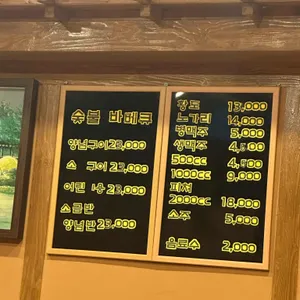 숯불 바베큐
양념구이23,000
소 구이 23,000
이린 닝 23,000
소금반
양념반 23,000
황도 13,000
노가리 14,000
병맥주 5,000
생맥주 4,500
500cc 4,500
1000cc 9,000
피쳐
2000cc 18,000
소주 5,000
음료수 2,000